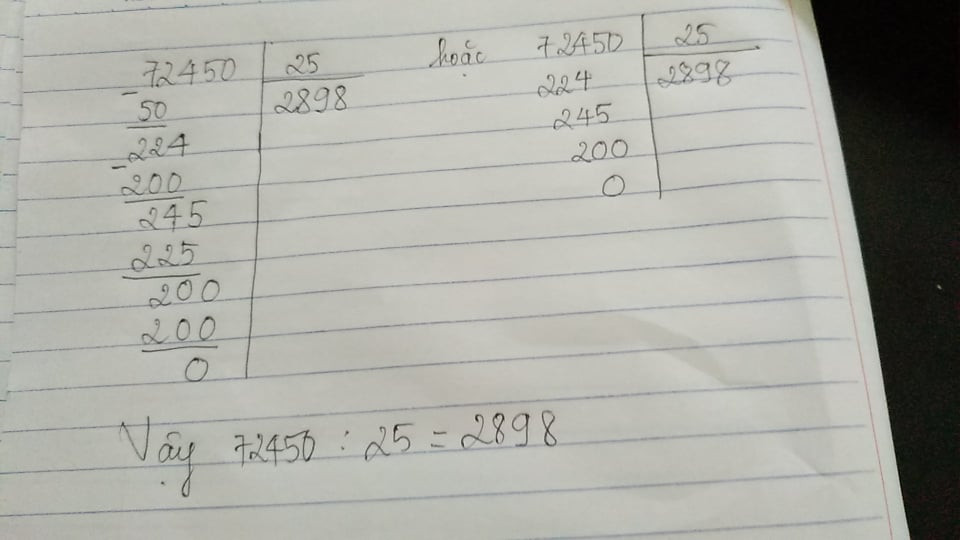 72450 25 hoặc 72450 25
- 50 2898 224 2898
224 245
- 200 200
245 0
225
200
200
0
Vậy 72450 : 25 = 2898